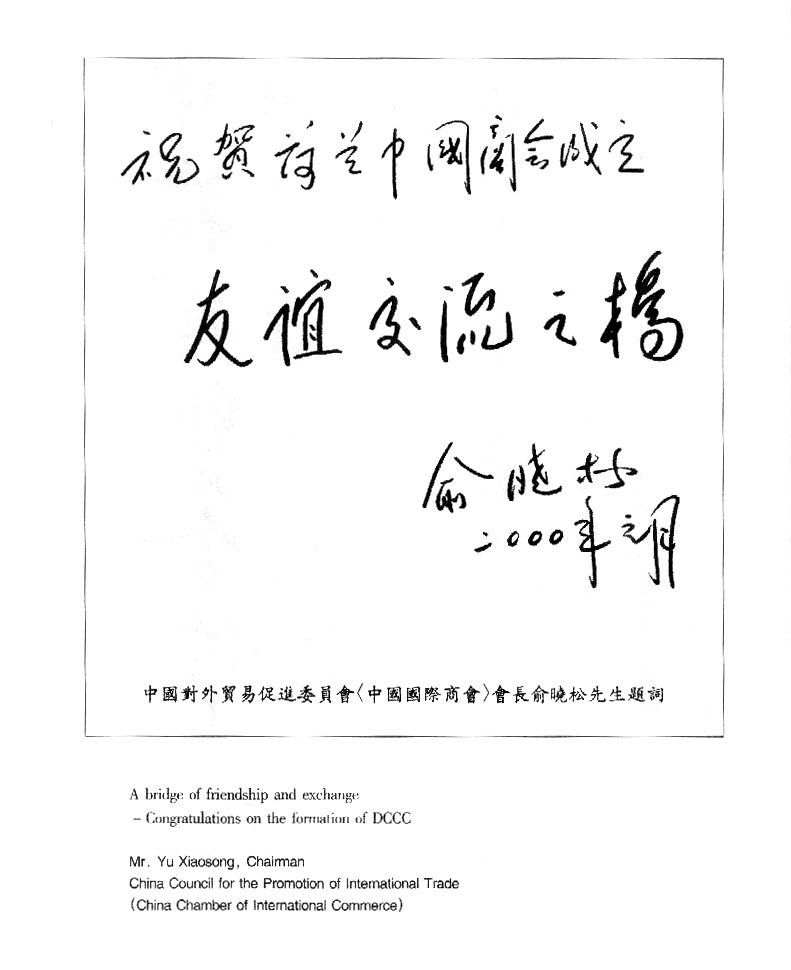 祝贺荷兰中國商会成立
友谊交流之橋
俞晓松
二000年元月
中國對外貿易促進委員會〈中國國際商會〉會長俞曉松先生題詞
A bridge of friendship and exchange
– Congratulations on the formation of DCCC
Mr. Yu Xiaosong, Chairman
China Council for the Promotion of International Trade
(China Chamber of International Commerce)